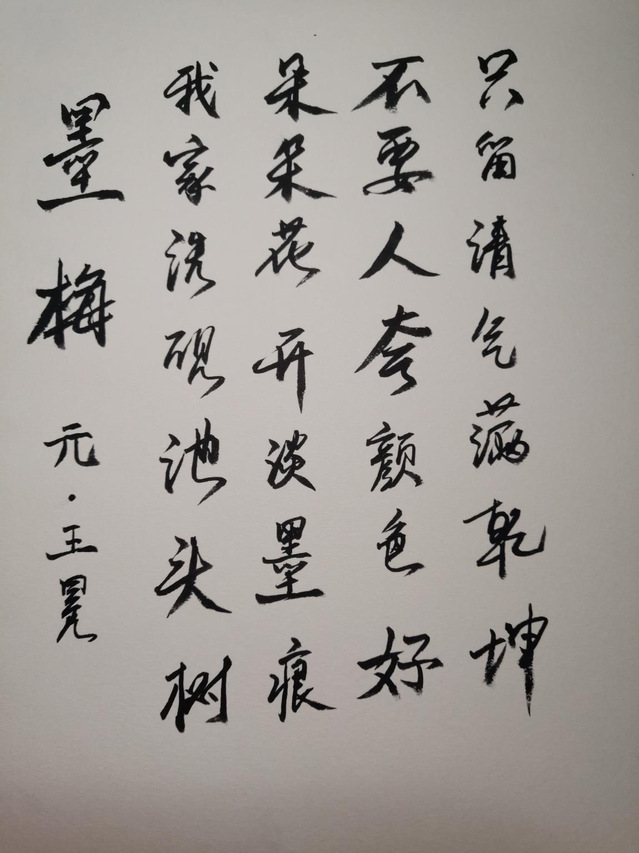 墨梅 元·王冕
我家洗砚池头树
朵朵花开淡墨痕
不要人夸颜色好
只留清气满乾坤